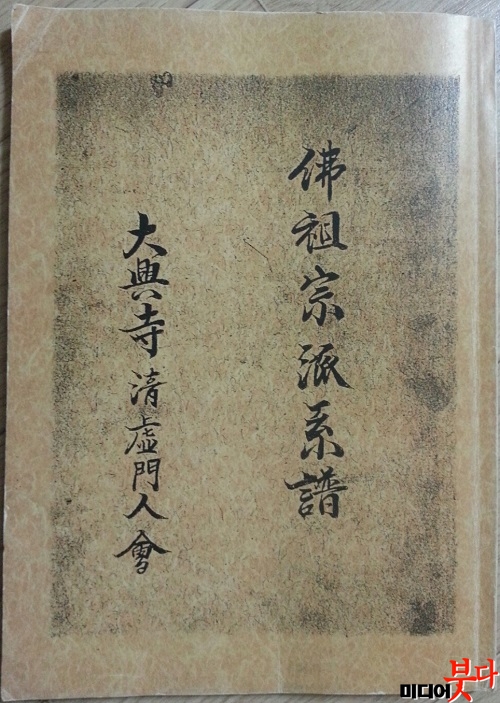 佛祖宗派系譜
大興寺淸虛門人會
미디어붓다